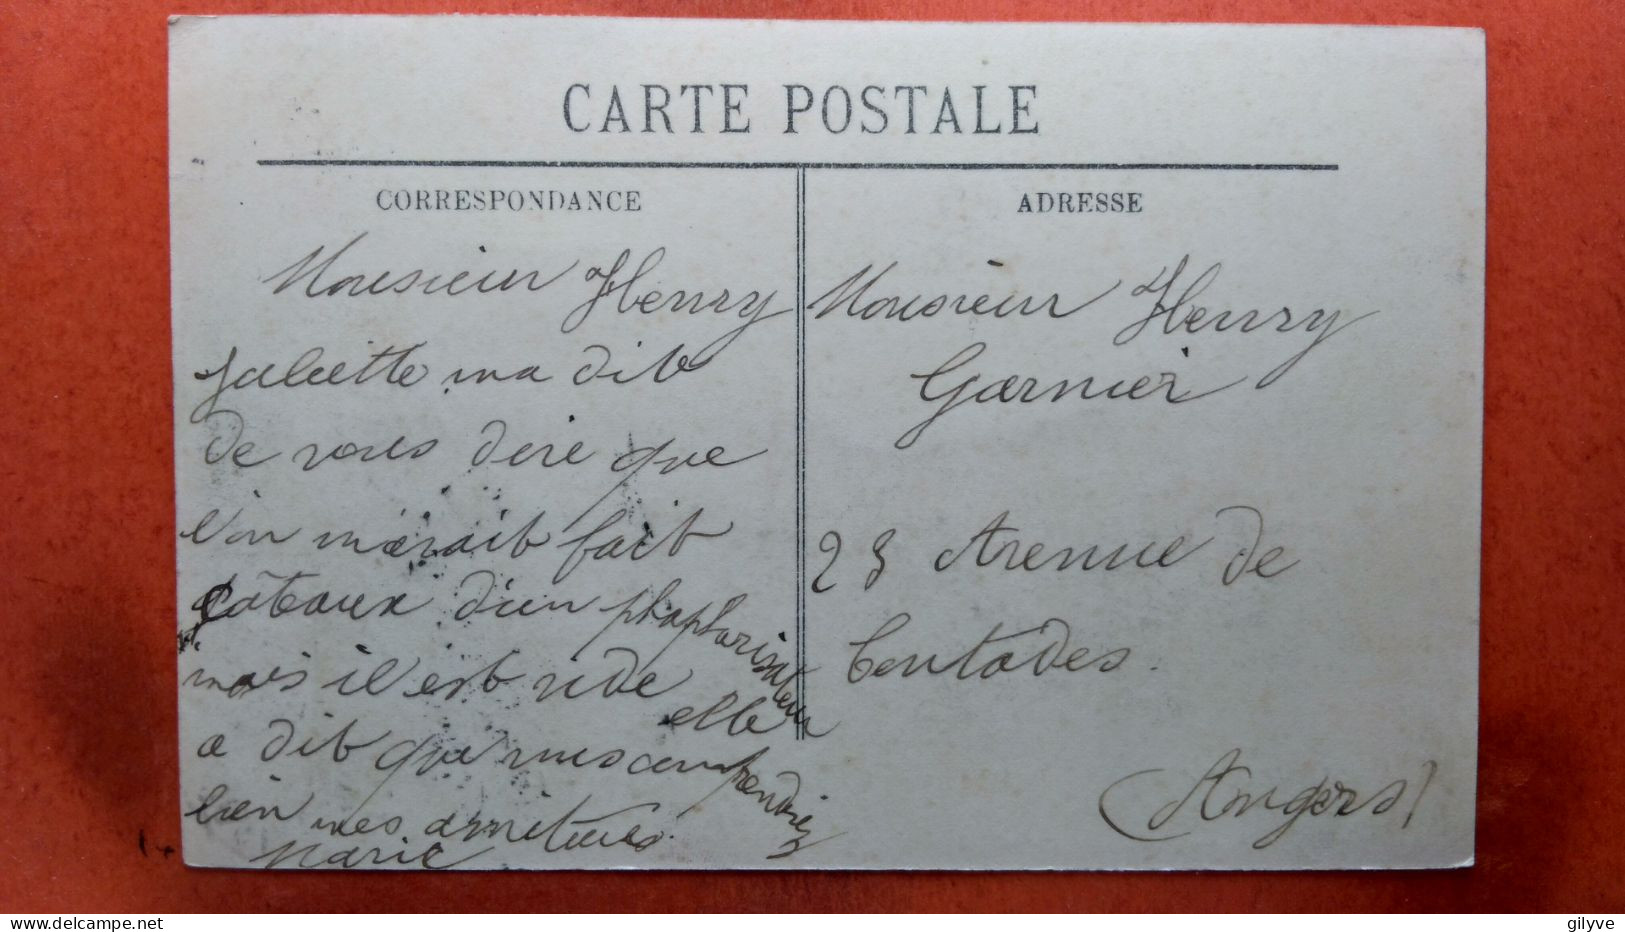 CARTE POSTALE
CORRESPONDANCE
Monsieur Henry
Juliette ma dit
de vous dire que
l'on m'avait fait
câteaux d'un phapharisateur
mais il est vide elle
a dit que vous comprendriez
bien mes amitiées
Marie
ADRESSE
Monsieur Henry
Garnier
23 Avenue de
Contades.
(Angers)
gilyve